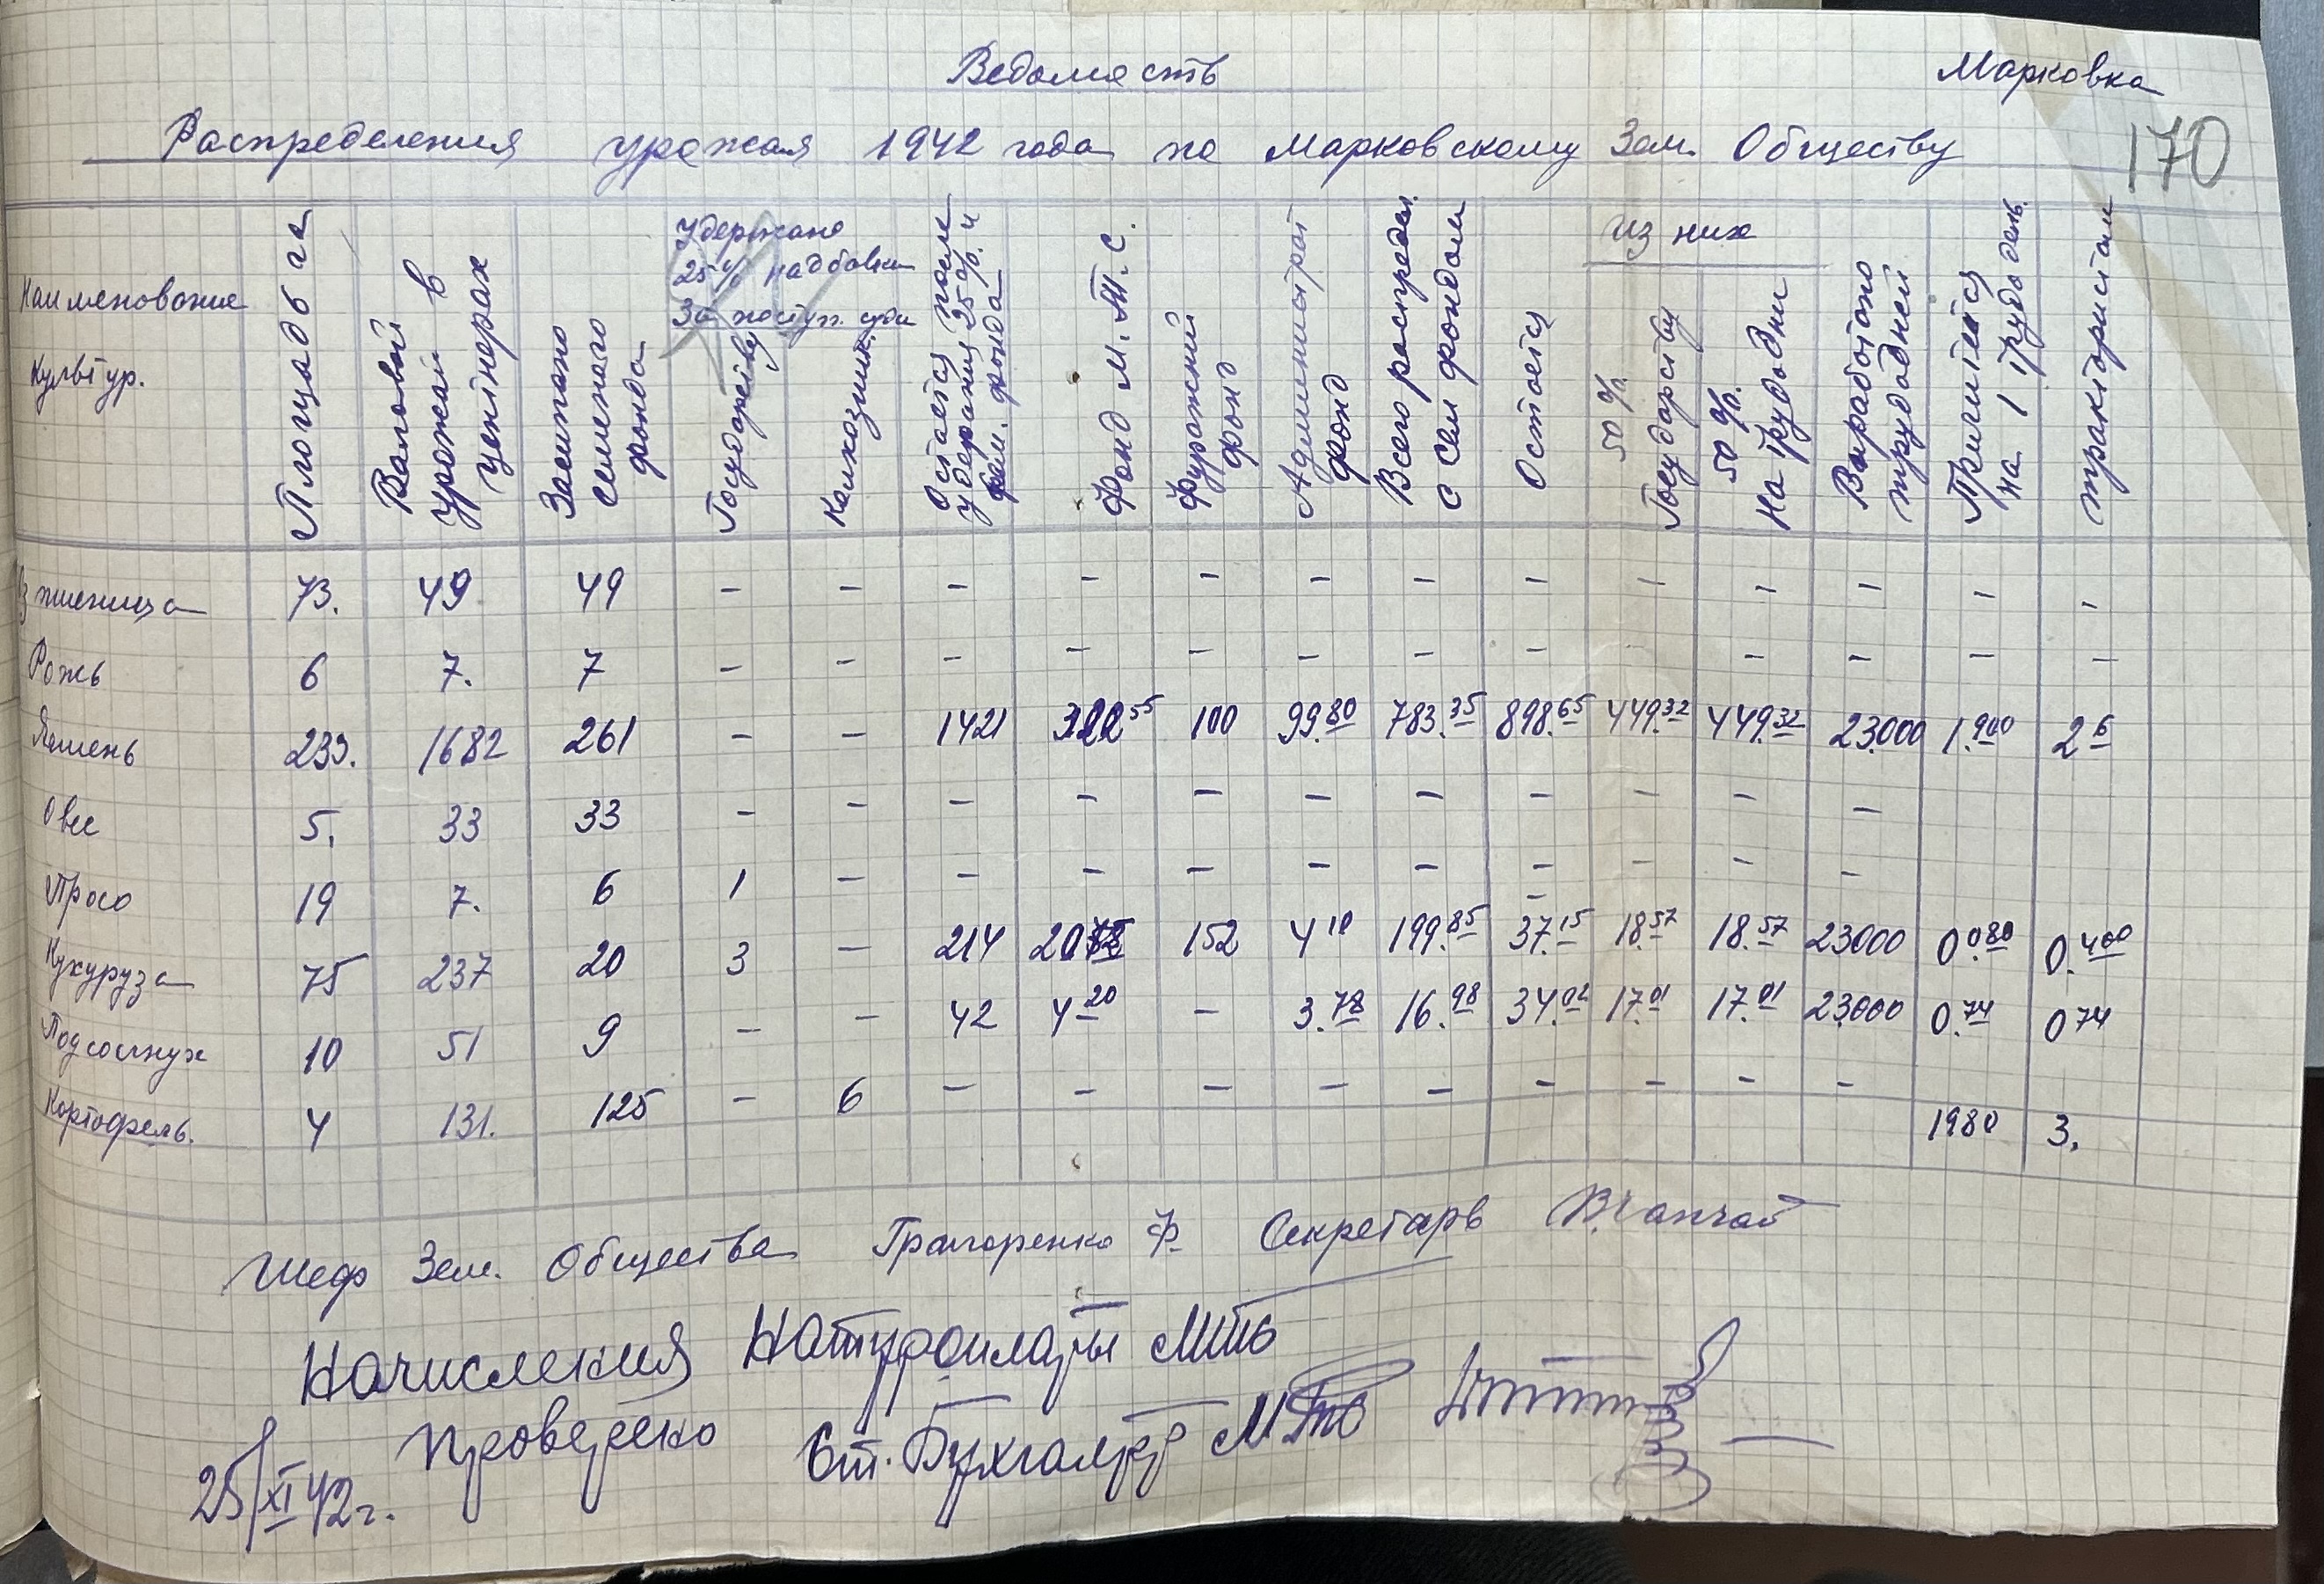 Ведомость
Марковка
Распределения урожая 1942 года по Марковскому Зем. Обществу
170
Наименование Культур.
Площадь га
Валовой урожай в центнерах
Засыпано семенного фонда
Удержано 25% надбавки За поступ.
Государству
Колхозник.
Остается после удержания 25% и сем. фонда
Фонд М.Т.С.
Фуражный фонд
Администрат фонд
Всего распредел. с сем фондом
Остается
из них
50%. Государству
50%. На трудодни
Выработано трудодней
Причитается на 1 трудодень.
трактористам
Оз пшеница 73. 49 49 - - - - - - - - - - - - -
Рожь 6 7. 7 - - - - - - - - - - - -
Ячмень 233. 1682 261 - - 1421 322 55 100 99.80 783.35 898.65 449.32 449.32 23.000 1.900 2 6
Овес 5. 33 33 - - - - - - - - - - -
Просо 19 7. 6 1 - - - - - - - - - -
Кукуруза 75 237 20 3 - 214 20 152 4 10 199.85 37.15 18.57 18.57 23000 0 080 0.400
Подсолнух 10 51 9 - - 42 4 20 - 3.78 16.98 34.02 17.01 17.01 23.000 0.74 0 74
Картофель. 4 131. 125 - 6 - - - - - - - - -
1980 3.
Шеф Зем. Общества Григоренко Ф. Секретарь
Начисления Натуроплаты МТС
проверено Ст. Бухгалтер МТС
25/XI 42г.